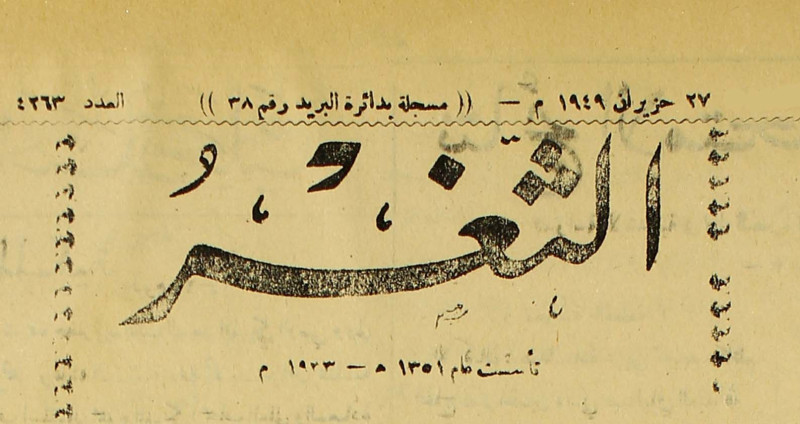 ٢٧ حزيران ١٩٤٩ م — (( مسجلة بدائرة البريد رقم ٣٨ )) العدد ٤٢٦٣
الثغر
تأسست عام ١٣٥١ ه — ١٩٣٣ م